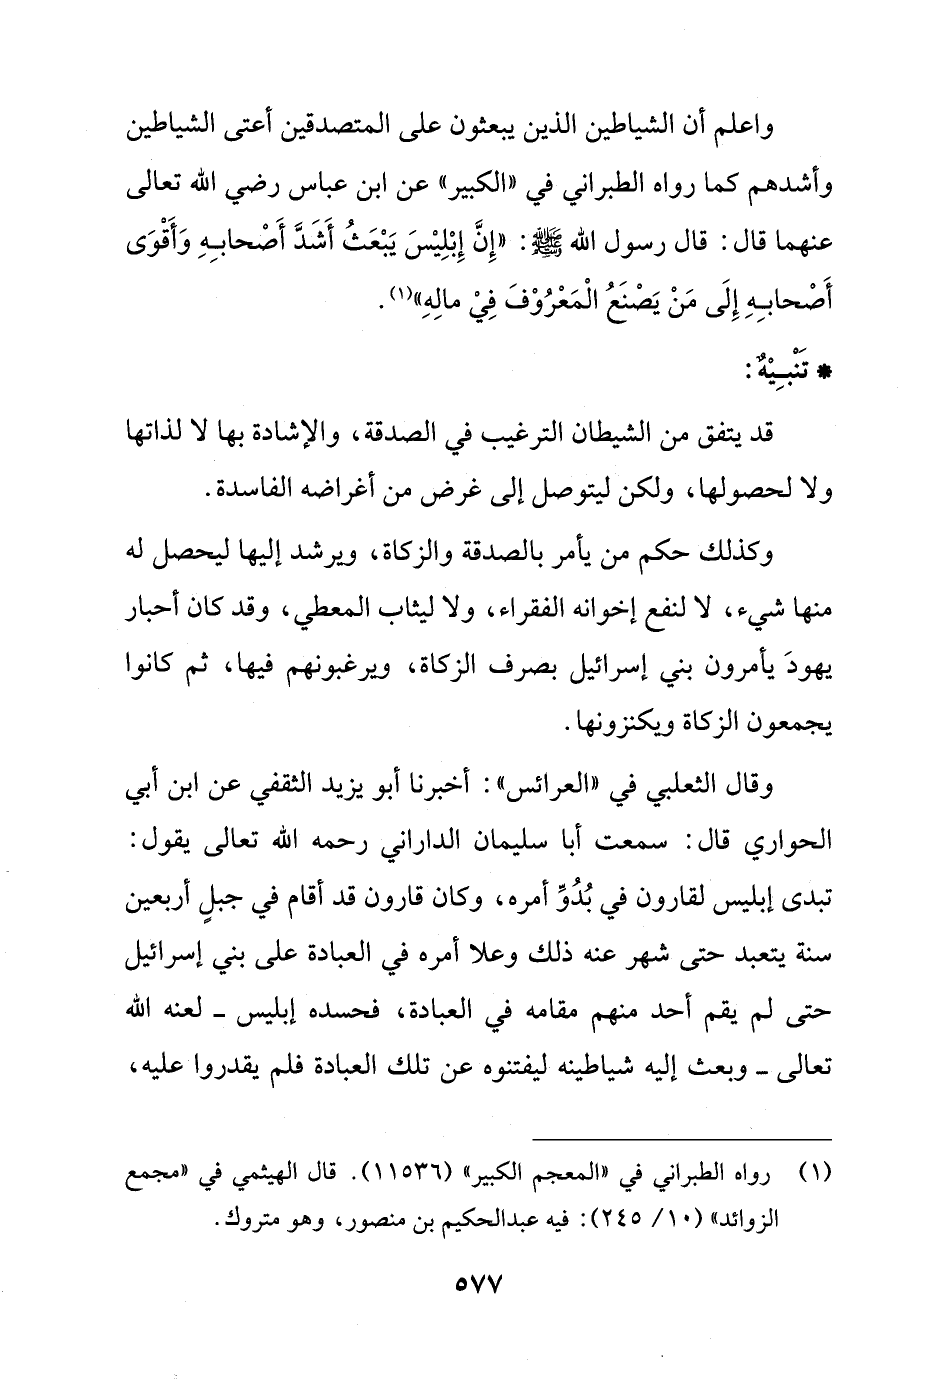 واعلم أن الشياطين الذين يبعثون على المتصدقين أعتى الشياطين
وأشدهم كما رواه الطبراني في «الكبير» عن ابن عباس رضي الله تعالى
عنهما قال: قال رسول الله ﷺ: «إِنَّ إِبْلِيْسَ يَبْعَثُ أَشَدَّ أَصْحابِهِ وَأَقْوَى
أَصْحابِهِ إِلَى مَنْ يَصْنَعُ الْمَعْرُوْفَ فِيْ مالِهِ»(١).
* تَنْبِيْهٌ:
قد يتفق من الشيطان الترغيب في الصدقة، والإشادة بها لا لذاتها
ولا لحصولها، ولكن ليتوصل إلى غرض من أغراضه الفاسدة.
وكذلك حكم من يأمر بالصدقة والزكاة، ويرشد إليها ليحصل له
منها شيء، لا لنفع إخوانه الفقراء، ولا ليثاب المعطي، وقد كان أحبار
يهودَ يأمرون بني إسرائيل بصرف الزكاة، ويرغبونهم فيها، ثم كانوا
يجمعون الزكاة ويكنزونها.
وقال الثعلبي في «العرائس»: أخبرنا أبو يزيد الثقفي عن ابن أبي
الحواري قال: سمعت أبا سليمان الداراني رحمه الله تعالى يقول:
تبدى إبليس لقارون في بُدُوِّ أمره، وكان قارون قد أقام في جبلٍ أربعين
سنة يتعبد حتى شهر عنه ذلك وعلا أمره في العبادة على بني إسرائيل
حتى لم يقم أحد منهم مقامه في العبادة، فحسده إبليس ـ لعنه الله
تعالى ـ وبعث إليه شياطينه ليفتنوه عن تلك العبادة فلم يقدروا عليه،
(١) رواه الطبراني في «المعجم الكبير» (١١٥٣٦). قال الهيثمي في «مجمع
الزوائد» (١٠/ ٢٤٥): فيه عبدالحكيم بن منصور، وهو متروك.
٥٧٧